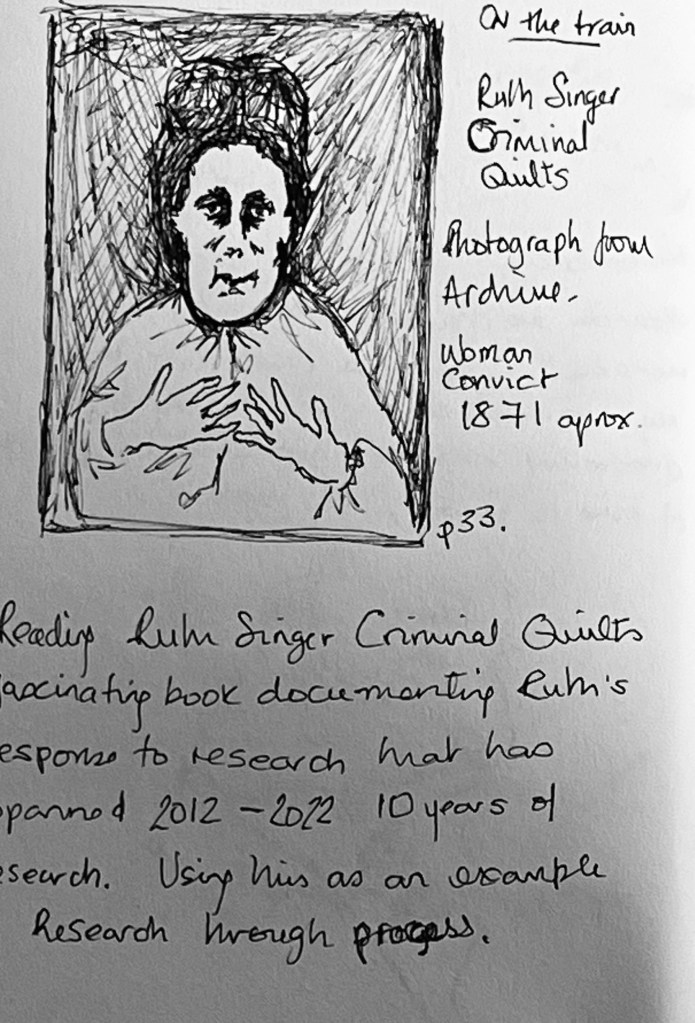 On the train
Ruth Singer
Criminal
Quilts
Photograph from
Archive.
Woman
Convict
1871 aprox.
p33.
Reading Ruth Singer Criminal Quilts
fascinating book documenting Ruth's
response to research that has
spanned 2012 - 2022 10 years of
research. Using this as an example
Research through process.